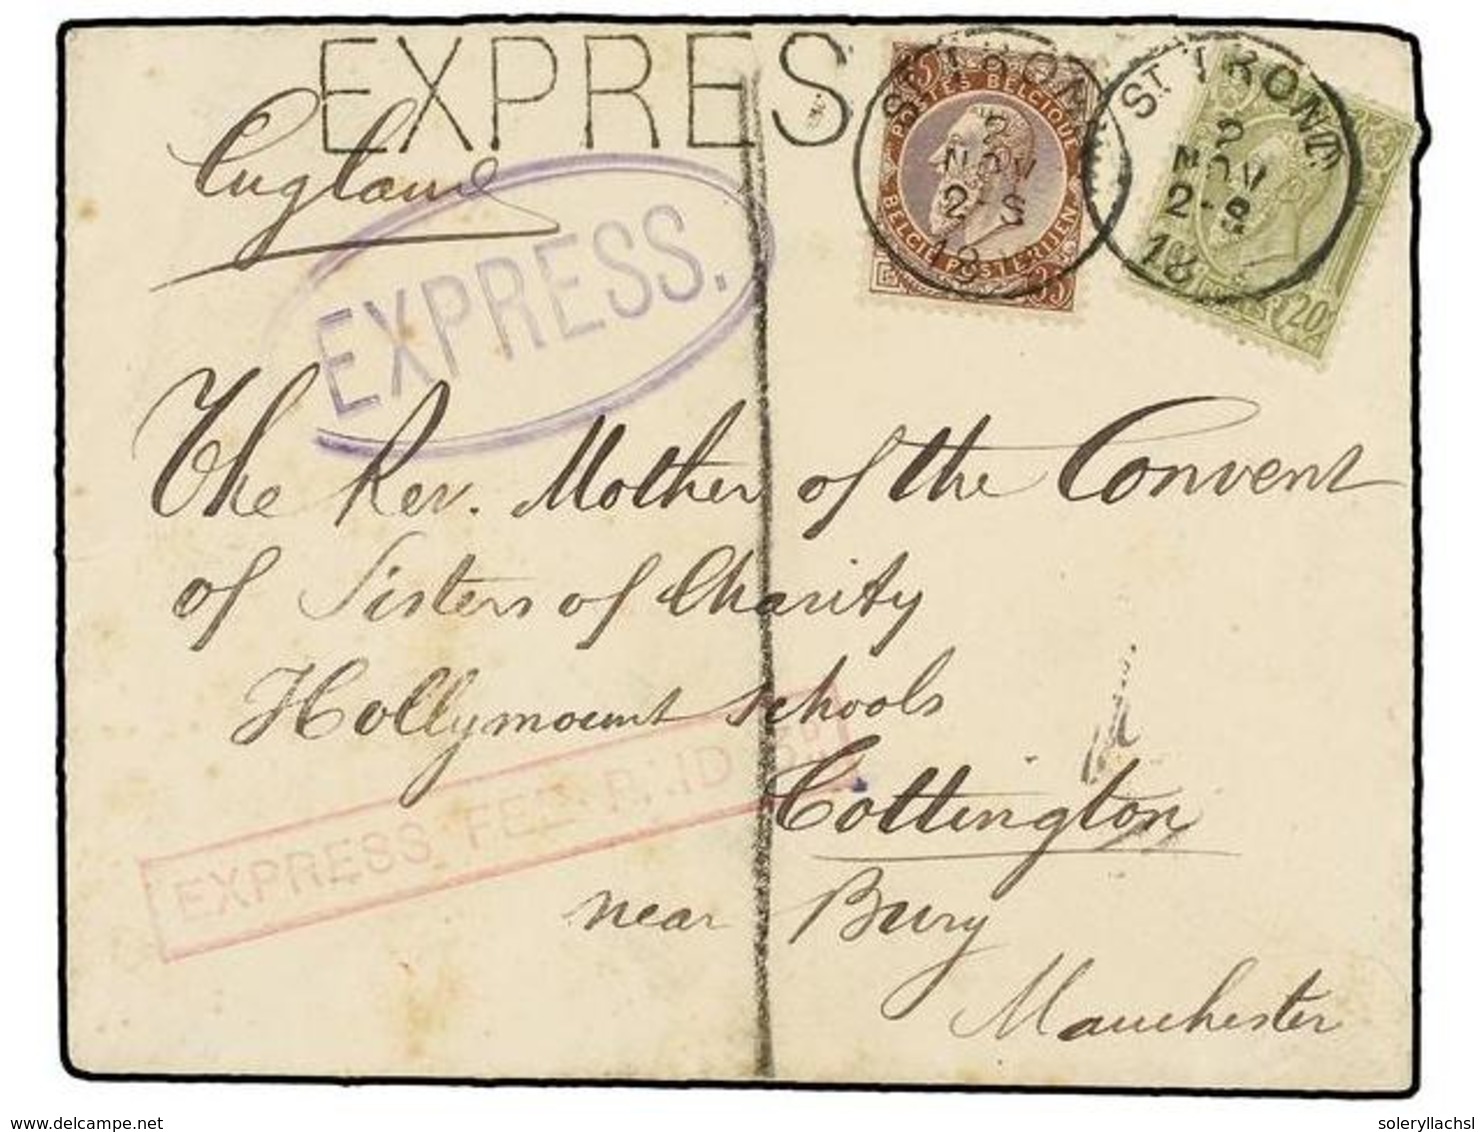 EXPRES
England
EXPRESS.
POSTES BELGIQUE
BELGIË POSTERIJEN
35
ST TROND
2
NOV
2-S
18
ST TROND
2
NOV
2-S
18
20
The Rev. Mother of the Convent
of Sisters of Charity
Hollymount schools
Cottington
near Bury
Manchester
EXPRESS FEE PAID
www.delcampe.net
soleryllachsl